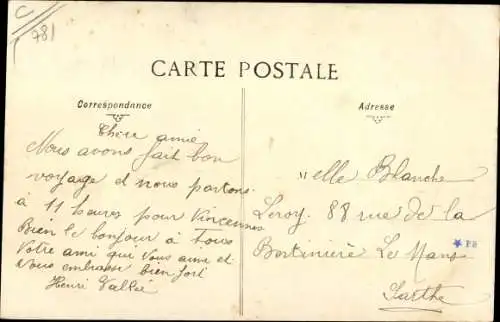 C
781
CARTE POSTALE
Correspondance
Adresse
Chère amie
Nous avons fait bon
voyage et nous partons
à 11 heures pour Vincennes
Bien le bonjour à Tous
Votre ami qui vous aime et
vous embrasse bien fort
Henri Vallée
Melle Blanche
Leroy, 88 rue de la
Bertinière Le Mans
Sarthe